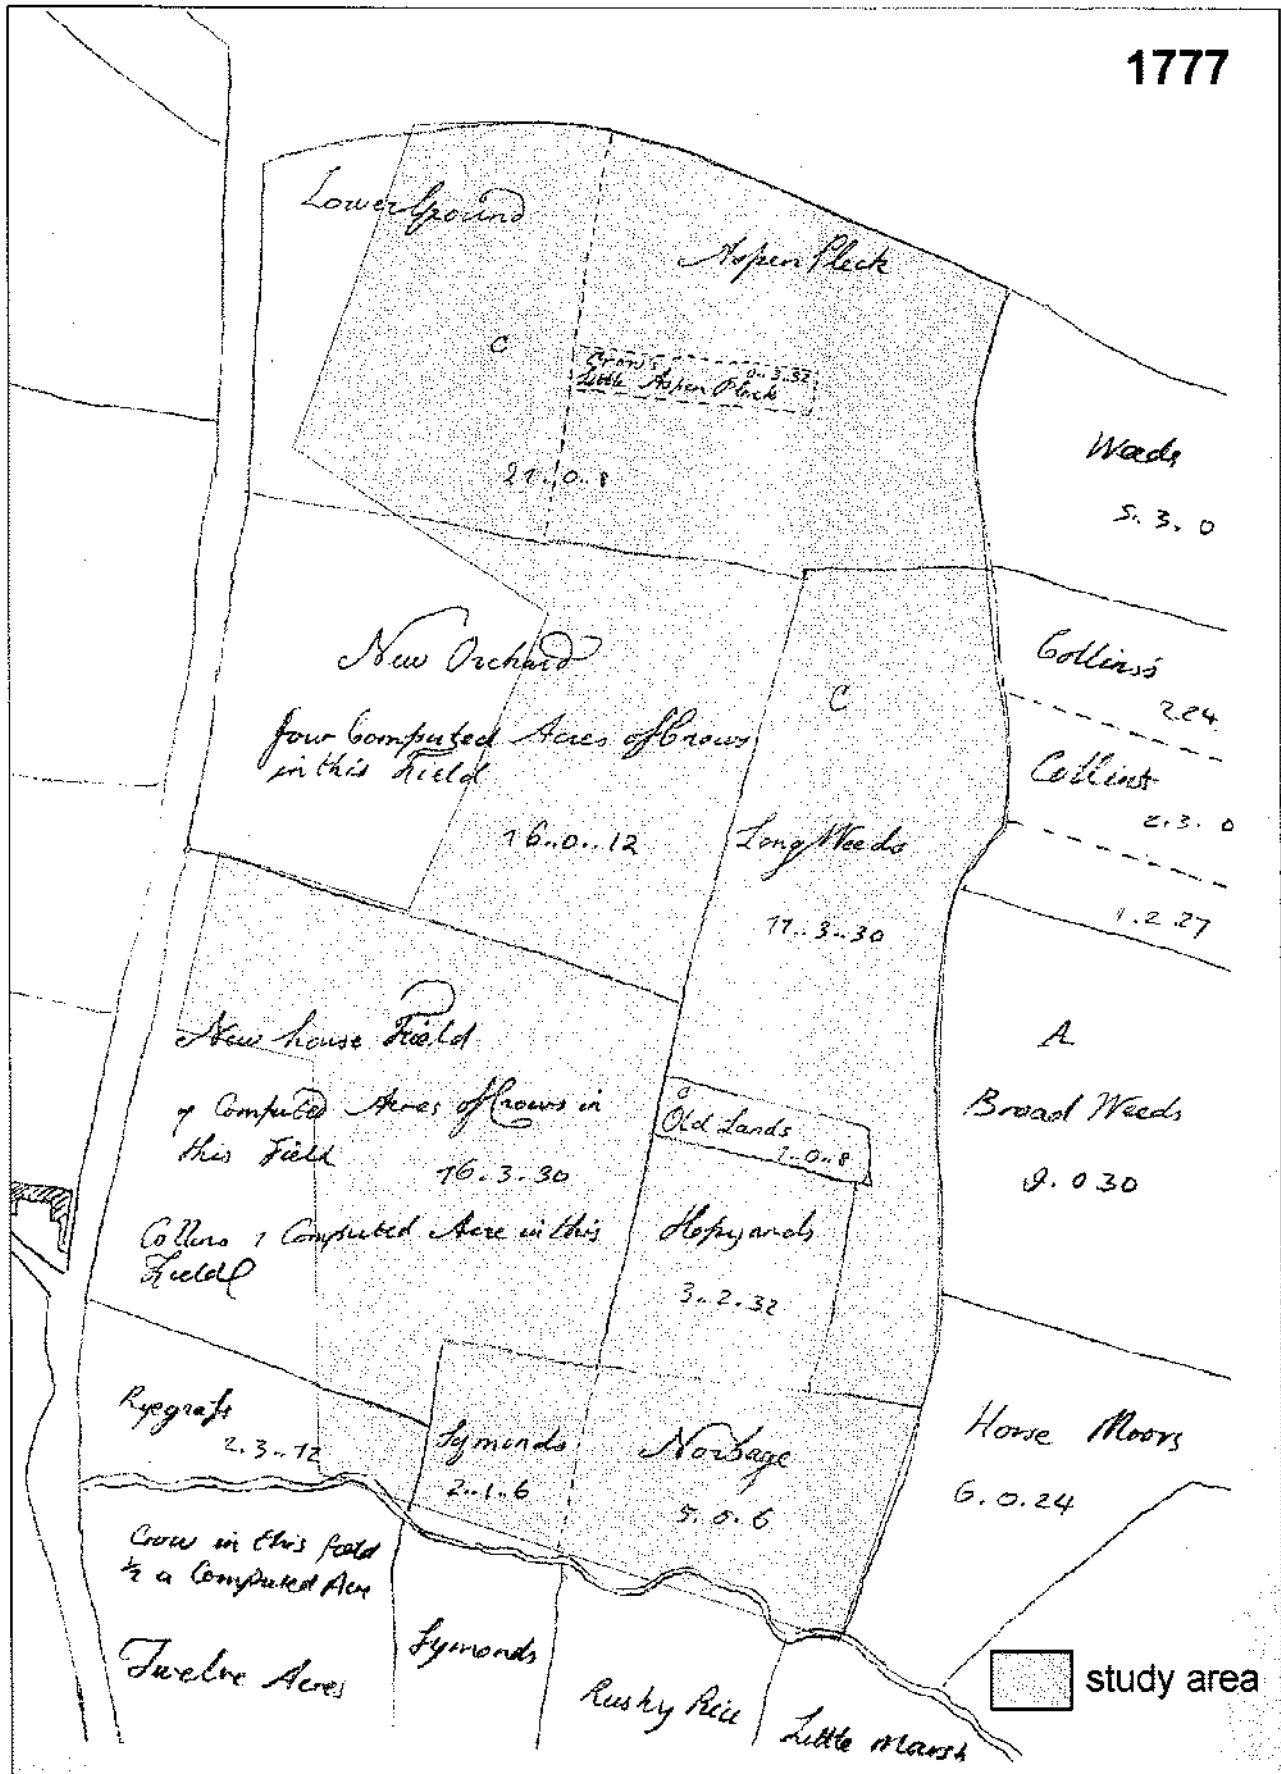 1777
Lower Ground
Aspen Pleck
C
Crow's 0..3..32
Little Aspen Pleck
21..0..8
Weeds
5. 3. 0
New Orchard
four Computed Acres of Crows
in this Field
16..0..12
C
Long Weeds
11..3..30
Collins's
2.24
Collins
2.3.0
1.2.27
New house Field
Computed Acres of Crows in
this Field
16..3..30
Collins 1 Computed Acre in this
Field
Old Lands
1..0..8
Hopyards
3..2..32
A
Broad Weeds
9. 0 30
Ryegrass
2.3..12
Symonds
2..1..6
Norbage
5. 0. 6
Horse Moors
6. 0. 24
Crow in this field
½ a Computed Acre
Twelve Acres
Symonds
Rushy
Little Marsh
study area